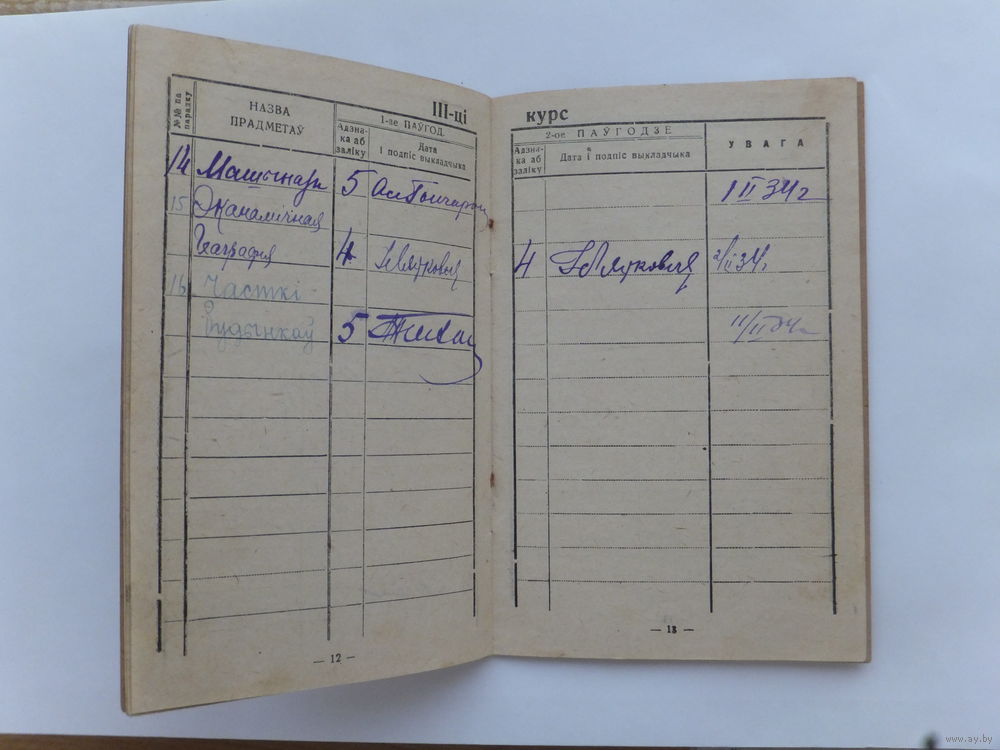 III-ці курс
№№ па парадку
НАЗВА ПРАДМЕТАЎ
1-ае ПАЎГОД.
Адзна-
ка аб
заліку
Дата
і подпіс выкладчыка
2-ое ПАЎГОДЗЕ
Адзна-
ка аб
заліку
Дата і подпіс выкладчыка
УВАГА
14 5 1 II 34 г
15 Эканамічная
Геаграфія 4 4 2/II 34 г.
16 Часткі
Будынкаў 5 11/II 34 г
— 12 —
— 13 —
www.ay.by